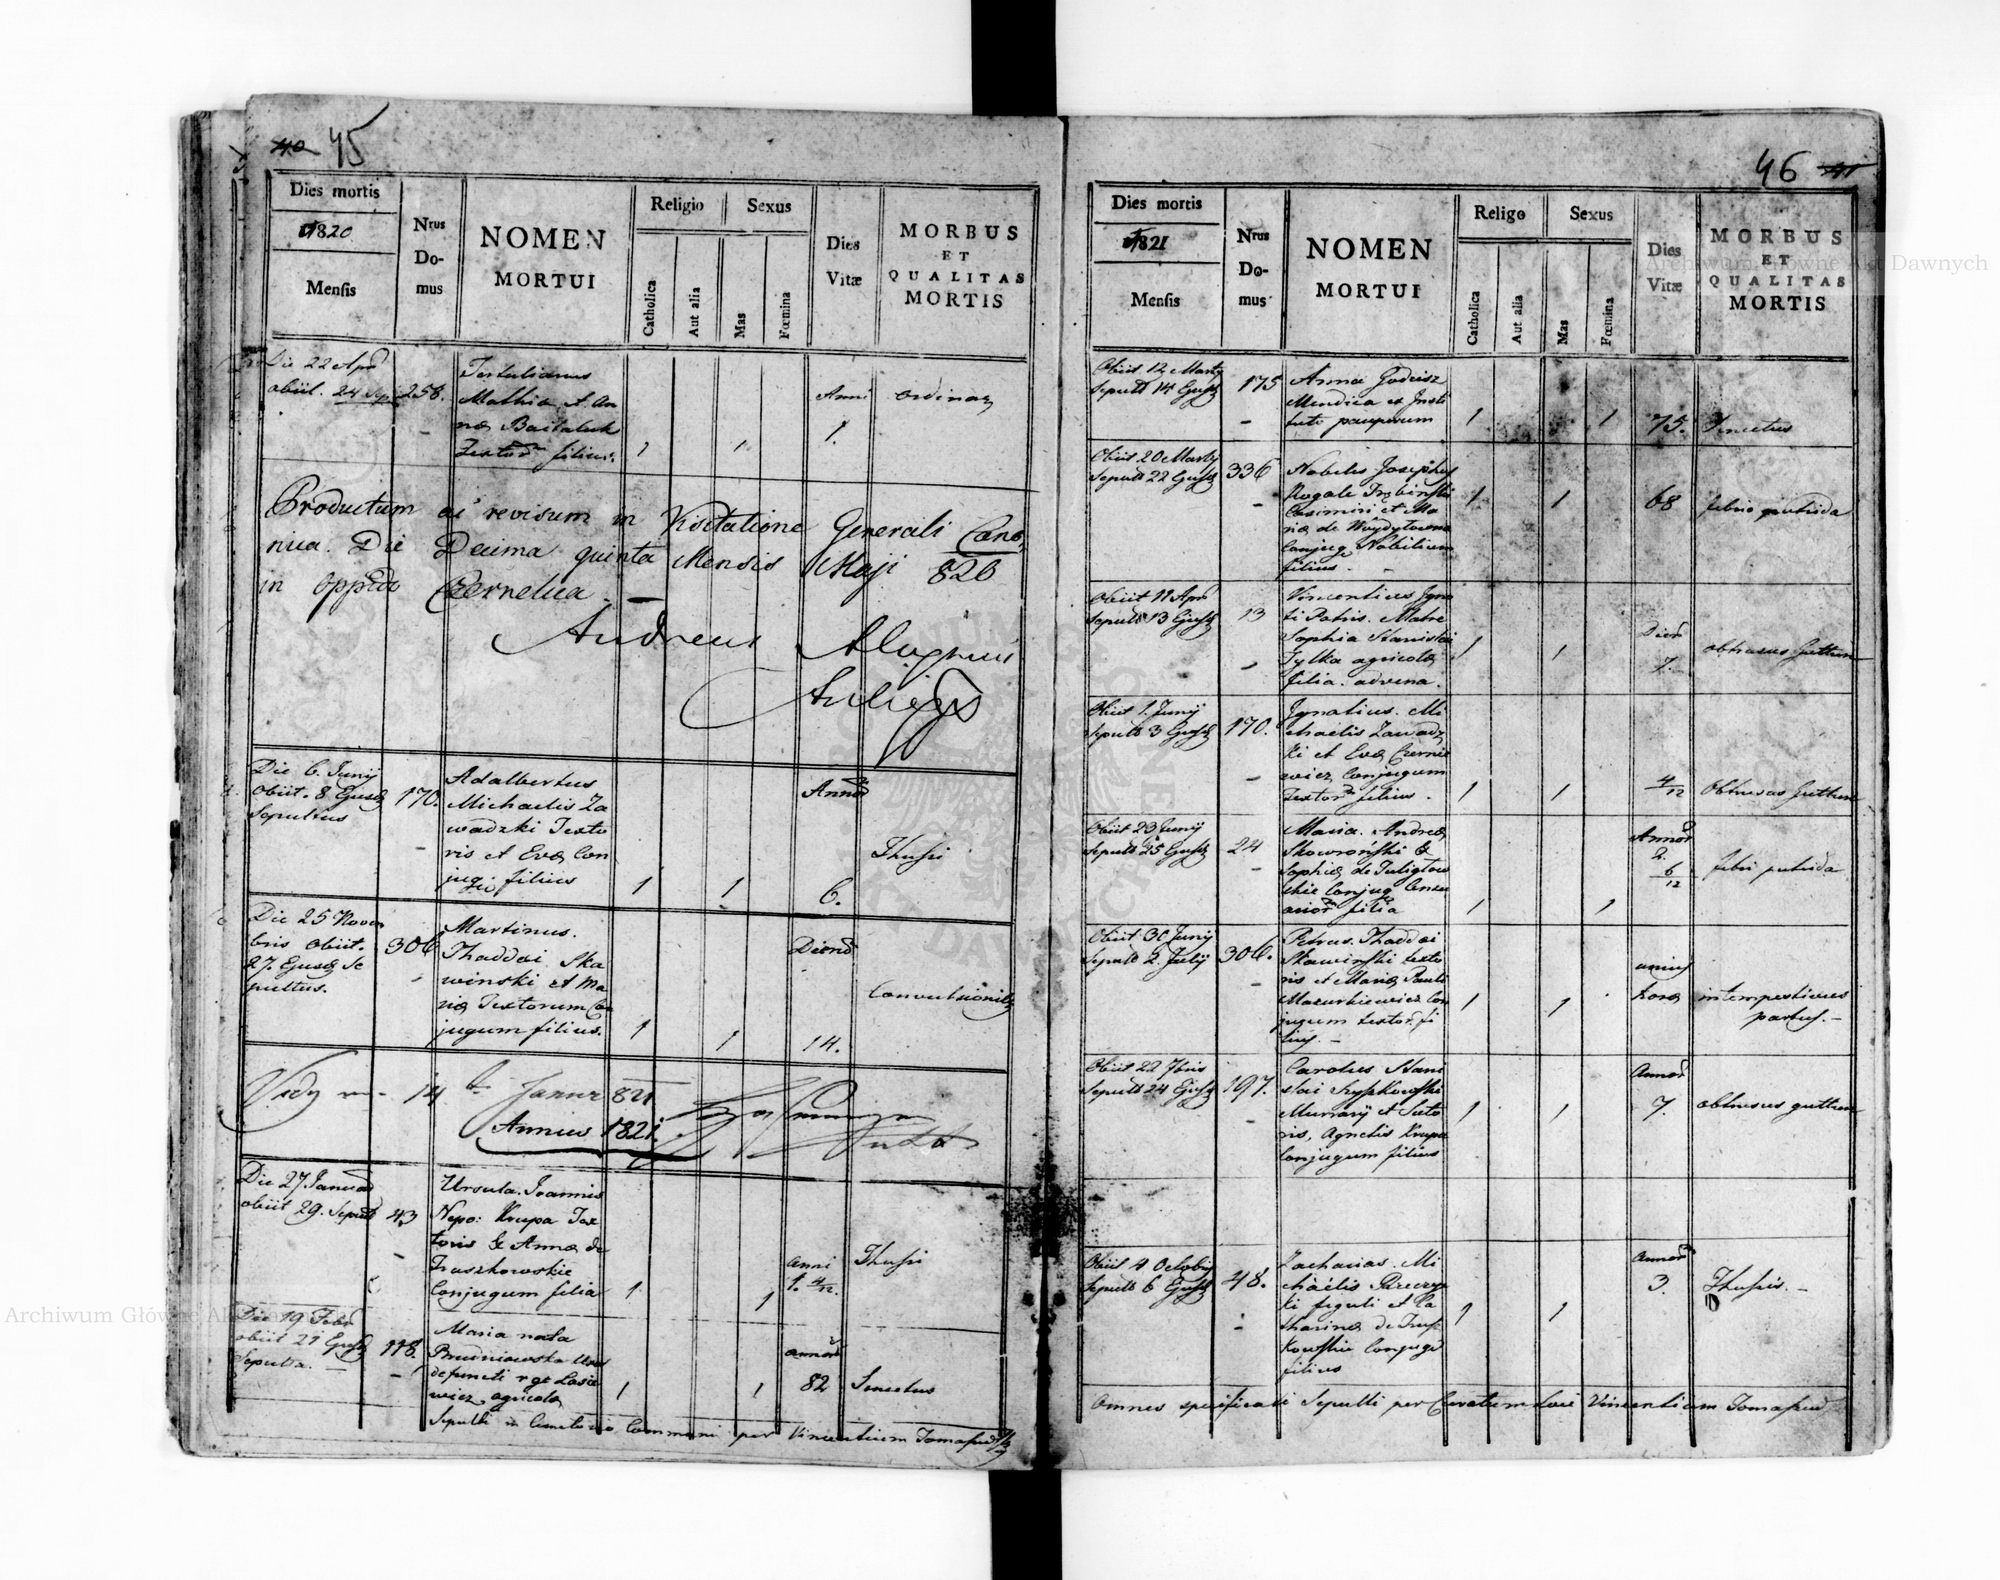 40 45
Dies mortis
1820
Mensis
Nrus
Do-
mus
NOMEN
MORTUI
Religio
Catholica
Aut alia
Sexus
Mas
Fœmina
Dies
Vitæ
MORBUS
ET
QUALITAS
MORTIS
Die 22 Apr
obiit. 24 Sep
258.
Mathiæ et An
næ
Textor filius.
1
1
Anni
1.
ordinar
Productum ac revisum in Visitatione Generali Cano
nica. Die Decima quinta Mensis Maji 820
in Oppido Czernelica
Andreas
Die 6. Junij
obiit. 8 Ejusd
Sepultus
170.
Adalbertus
Michaelis Za
wadzki Texto
ris et Evæ Con
jug: filius
1
1
Annor
6.
Thussi
Die 25 Novem
bris obiit.
27. Ejusd Se
pultus.
306
Martinus.
Thaddæi Ska
winski et Ma
riæ Textorum Con
jugum filius.
1
1
Dierum
14.
Convulsionib
14 Januar 821
Annus 1821.
Die 27 Januar
obiit 29. Sepult
43
Ursula. Joannis
Nepo: Krupa Tex
toris & Annæ de
Truszkowskie
Conjugum filia
1
1
anni
1. 4/12.
Thussi
Die 19 Febr
obiit 21 Ejusd
Sepulta.
118.
Maria nata
defuncti
agricolæ
1
1
annor
82
Senectus
Sepulti in Cemeterio Communi per Vincentium
46 41
Dies mortis
1821
Mensis
Nrus
Do-
mus
NOMEN
MORTUI
Religo
Catholica
Aut alia
Sexus
Mas
Fœmina
Dies
Vitæ
MORBUS
ET
QUALITAS
MORTIS
Obiit 12 Martij
Sepult 14 Ejusd
175
Anna
Mendica ex Insti
tuto pauperum
1
1
75.
Senectus
Obiit 20 Martij
Sepult 22 Ejusd
336
Nobilis Josephus
Rogale
Casimiri et Ma
riæ de
Conjug Nobilium
filius.
1
1
68
febris putrida
Obiit 11 Apr
Sepult 13 Ejusd
13
Vincentius Igno
ti Patris. Matre
Sophia Stanislai
Tylka agricolæ
filia. advena.
1
1
Dier
7.
obtusus Guttur
Obiit 1. Junij
Sepult 3 Ejusd
170.
Ignatius. Mi
chaelis Zawadz
ki et Evæ Czernie
wicz Conjugum
Textor filius.
1
1
4/12
Obtusus Guttur
Obiit 23 Junij
Sepult 25 Ejusd
24
Maria. Andreæ
Skowroński &
Sophiæ de
skie Conjug
filia
1
1
Annor
2.
6/12
febri putrida
Obiit 30 Junij
Sepult 2. Julij
306.
Petrus. Thaddæi
Skawinski texto
ris et Mariæ Pauli
Mazurkiewicz Con
jugum textor. fi
lius.
1
1
unius
horæ
intempestivus
partus.
Obiit 22 7bris
Sepult 24 Ejusd
197.
Carolus Stani
slai
Murarij et Suto
ris, Agnetis Krupa
Conjugum filius
1
1
Annor
7.
obtusus guttur
Obiit 4 Octobris
Sepult 6 Ejusd
48.
Zacharias. Mi
chaelis
ki figuli et Ca
tharinæ de Trusz
kowskie Conjugu
filius
1
1
Annor
3.
Thussis.
Omnes specificati Sepulti per Curatum Loci Vincentium
Archiwum Główne Akt Dawnych
Archiwum Główne Akt Dawnych